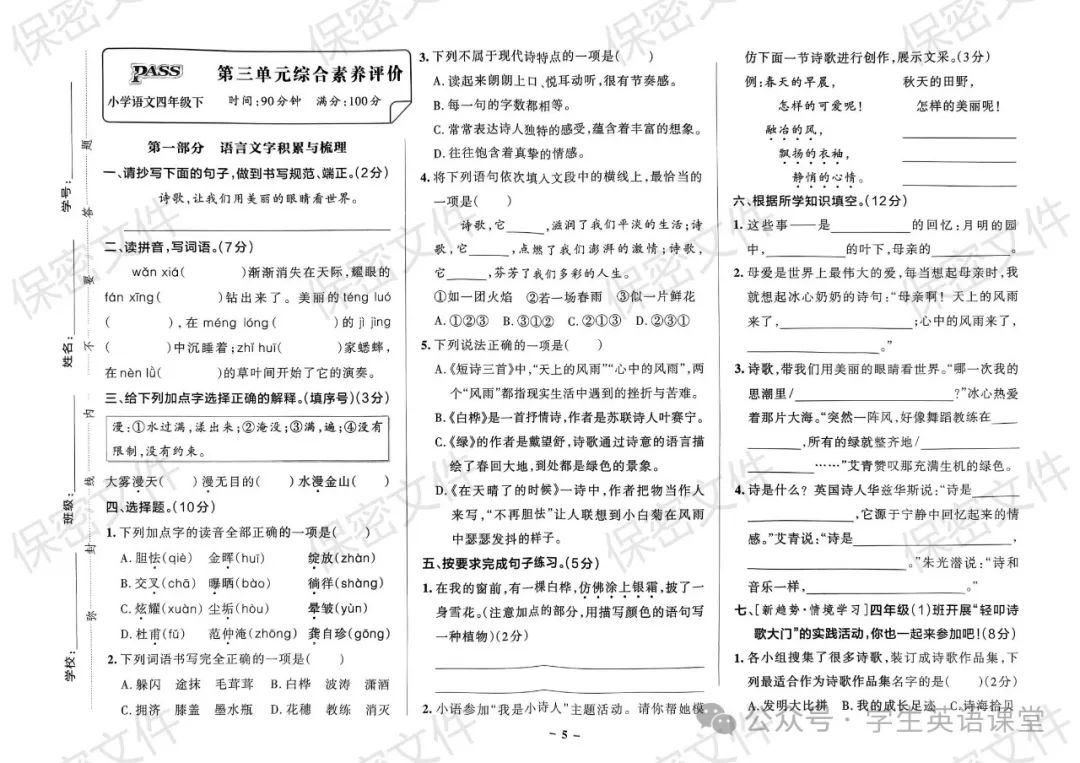 学校：
班级：
姓名：
学号：
弥 封 线 内 不 要 答 题
PASS
第三单元综合素养评价
小学语文四年级下 时间：90分钟 满分：100分
第一部分 语言文字积累与梳理
一、请抄写下面的句子，做到书写规范、端正。（2分）
诗歌，让我们用美丽的眼睛看世界。
二、读拼音，写词语。（7分）
wǎn xiá（ ）渐渐消失在天际，耀眼的
fán xīng（ ）钻出来了。美丽的téng luó
（ ），在méng lóng（ ）的jì jìng
（ ）中沉睡着；zhī huī（ ）家蟋蟀，
在nèn lǜ（ ）的草叶间开始了它的演奏。
三、给下列加点字选择正确的解释。（填序号）（3分）
漫：①水过满，漾出来；②淹没；③满，遍；④没有
限制，没有约束。
大雾漫天（ ）漫无目的（ ）水漫金山（ ）
四、选择题。（10分）
1. 下列加点字的读音全部正确的一项是（ ）
A. 胆怯(qiè) 金晖(huī) 绽放(zhàn)
B. 交叉(chā) 曝晒(bào) 徜徉(shàng)
C. 炫耀(xuàn) 尘垢(hòu) 晕皱(yùn)
D. 杜甫(fǔ) 范仲淹(zhōng) 龚自珍(gōng)
2. 下列词语书写完全正确的一项是（ ）
A. 躲闪 途抹 毛茸茸 B. 白桦 波涛 潇酒
C. 拥济 膝盖 墨水瓶 D. 花穗 教练 消灭
3. 下列不属于现代诗特点的一项是（ ）
A. 读起来朗朗上口、悦耳动听，很有节奏感。
B. 每一句的字数都相等。
C. 常常表达诗人独特的感受，蕴含着丰富的想象。
D. 往往饱含着真挚的情感。
4. 将下列语句依次填入文段中的横线上，最恰当的
一项是（ ）
诗歌，它________，滋润了我们平淡的生活；诗
歌，它________，点燃了我们澎湃的激情；诗歌，
它________，芬芳了我们多彩的人生。
①如一团火焰 ②若一场春雨 ③似一片鲜花
A. ①②③ B. ③①② C. ②①③ D. ②③①
5. 下列说法正确的一项是（ ）
A.《短诗三首》中，“天上的风雨”“心中的风雨”，两
个“风雨”都指现实生活中遇到的挫折与苦难。
B.《白桦》是一首抒情诗，作者是苏联诗人叶赛宁。
C.《绿》的作者是戴望舒，诗歌通过诗意的语言描
绘了春回大地，到处都是绿色的景象。
D.《在天晴了的时候》一诗中，作者把物当作人
来写，“不再胆怯”让人联想到小白菊在风雨
中瑟瑟发抖的样子。
五、按要求完成句子练习。（5分）
1. 在我的窗前，有一棵白桦，仿佛涂上银霜，披了一
身雪花。（注意加点的部分，用描写颜色的语句写
一种植物）（2分）
2. 小语参加“我是小诗人”主题活动。请你帮她模
仿下面一节诗歌进行创作，展示文采。（3分）
例：春天的早晨， 秋天的田野，
怎样的可爱呢！ 怎样的美丽呢！
融冶的风，
飘扬的衣袖，
静悄的心情。
六、根据所学知识填空。（12分）
1. 这些事——是________的回忆：月明的园
中，________的叶下，母亲的________。
2. 母爱是世界上最伟大的爱，每当想起母亲时，我
就想起冰心奶奶的诗句：“母亲啊！天上的风雨
来了，________；心中的风雨来了，
________。”
3. 诗歌，带我们用美丽的眼睛看世界。“哪一次我的
思潮里/________?”冰心热爱
着那片大海。“突然一阵风，好像舞蹈教练在____
________，所有的绿就整齐地/________
________……”艾青赞叹那充满生机的绿色。
4. 诗是什么？英国诗人华兹华斯说：“诗是________
________，它源于宁静中回忆起来的情
感。”艾青说：“诗是________
________。”朱光潜说：“诗和
音乐一样，________。”
七、[新趋势·情境学习]四年级（1）班开展“轻叩诗
歌大门”的实践活动，你也一起来参加吧！（8分）
1. 各小组搜集了很多诗歌，装订成诗歌作品集，下
列最适合作为诗歌作品集名字的是（ ）（2分）
A. 发明大比拼 B. 我的成长足迹 C. 诗海拾贝
- 5 -
公众号·学生英语课堂
保密文件